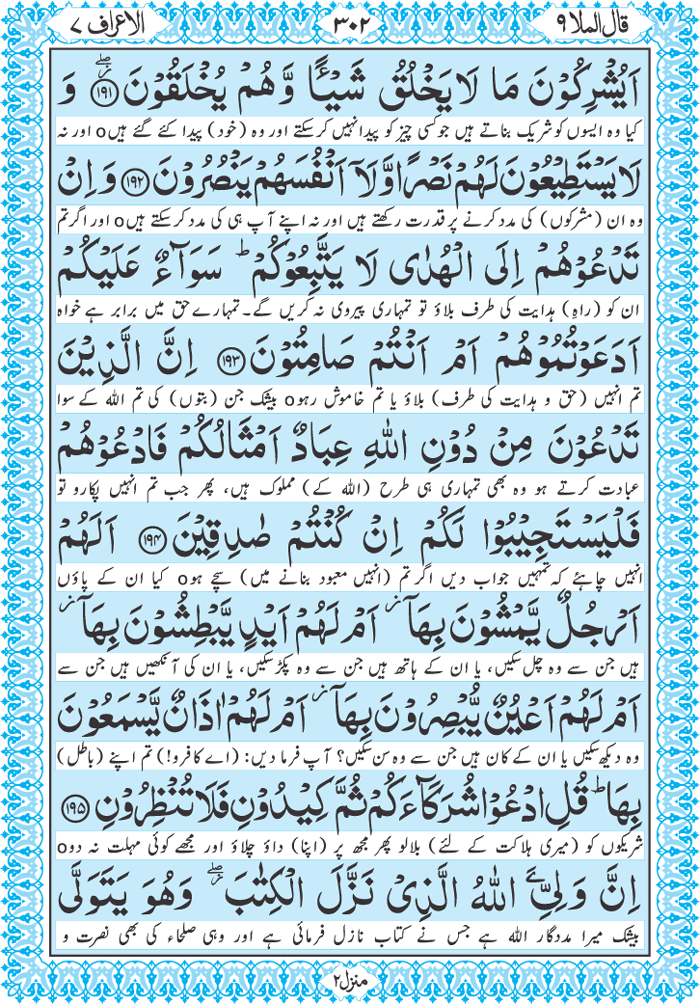 قال الملا ۹ ۳۰۲ الاعراف ۷
اَيُشْرِكُوْنَ مَا لَا يَخْلُقُ شَيْـًٔا وَّهُمْ يُخْلَقُوْنَ ۖ﴿۱۹۱﴾ وَ
کیا وہ ایسوں کو شریک بناتے ہیں جو کسی چیز کو پیدا نہیں کر سکتے اور وہ (خود) پیدا کئے گئے ہیںo اور نہ
لَا يَسْتَطِيْعُوْنَ لَهُمْ نَصْرًا وَّلَآ اَنْفُسَهُمْ يَنْصُرُوْنَ ﴿۱۹۲﴾ وَاِنْ
وہ ان (مشرکوں) کی مدد کرنے پر قدرت رکھتے ہیں اور نہ اپنے آپ ہی کی مدد کر سکتے ہیںo اور اگر تم
تَدْعُوْهُمْ اِلَى الْهُدٰى لَا يَتَّبِعُوْكُمْ ؕ سَوَآءٌ عَلَيْكُمْ
ان کو (راہِ) ہدایت کی طرف بلاؤ تو تمہاری پیروی نہ کریں گے۔ تمہارے حق میں برابر ہے خواہ
اَدَعَوْتُمُوْهُمْ اَمْ اَنْتُمْ صَامِتُوْنَ ﴿۱۹۳﴾ اِنَّ الَّذِيْنَ
تم انہیں (حق و ہدایت کی طرف) بلاؤ یا تم خاموش رہوo بیشک جن (بتوں) کی تم اللہ کے سوا
تَدْعُوْنَ مِنْ دُوْنِ اللّٰهِ عِبَادٌ اَمْثَالُكُمْ فَادْعُوْهُمْ
عبادت کرتے ہو وہ بھی تمہاری ہی طرح (اللہ کے) مملوک ہیں، پھر جب تم انہیں پکارو تو
فَلْيَسْتَجِيْبُوْا لَكُمْ اِنْ كُنْتُمْ صٰدِقِيْنَ ﴿۱۹۴﴾ اَلَهُمْ
انہیں چاہئے کہ تمہیں جواب دیں اگر تم (انہیں معبود بنانے میں) سچے ہوo کیا ان کے پاؤں
اَرْجُلٌ يَّمْشُوْنَ بِهَآ ؗ اَمْ لَهُمْ اَيْدٍ يَّبْطِشُوْنَ بِهَآ ؗ
ہیں جن سے وہ چل سکیں، یا ان کے ہاتھ ہیں جن سے وہ پکڑ سکیں، یا ان کی آنکھیں ہیں جن سے
اَمْ لَهُمْ اَعْيُنٌ يُّبْصِرُوْنَ بِهَآ ؗ اَمْ لَهُمْ اٰذَانٌ يَّسْمَعُوْنَ
وہ دیکھ سکیں یا ان کے کان ہیں جن سے وہ سن سکیں؟ آپ فرما دیں: (اے کافرو!) تم اپنے (باطل)
بِهَا ؕ قُلِ ادْعُوْا شُرَكَآءَكُمْ ثُمَّ كِيْدُوْنِ فَلَا تُنْظِرُوْنِ ﴿۱۹۵﴾
شریکوں کو (میری ہلاکت کے لئے) بلا لو پھر مجھ پر (اپنا) داؤ چلاؤ اور مجھے کوئی مہلت نہ دوo
اِنَّ وَلِيِّ َۧ اللّٰهُ الَّذِيْ نَزَّلَ الْكِتٰبَ ۖ وَهُوَ يَتَوَلَّى
بیشک میرا مددگار اللہ ہے جس نے کتاب نازل فرمائی ہے اور وہی صلحاء کی بھی نصرت و
منزل ۲